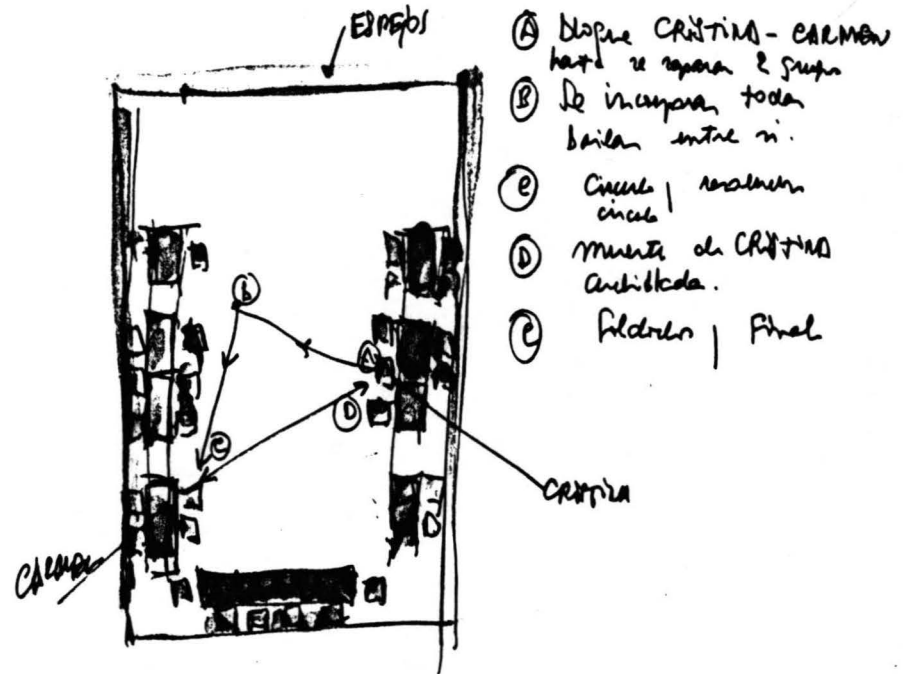 ESPEJOS
Ⓐ Bloque CRISTINA - CARMEN
hasta se separan 2 grupos
Ⓑ Se incorporan todas
bailan entre si.
Ⓒ Circulo |
circulo
Ⓓ muerte de CRISTINA
cuchillada.
Ⓔ | Final
Ⓑ
Ⓐ
Ⓓ
Ⓒ
CRISTINA
CARMEN